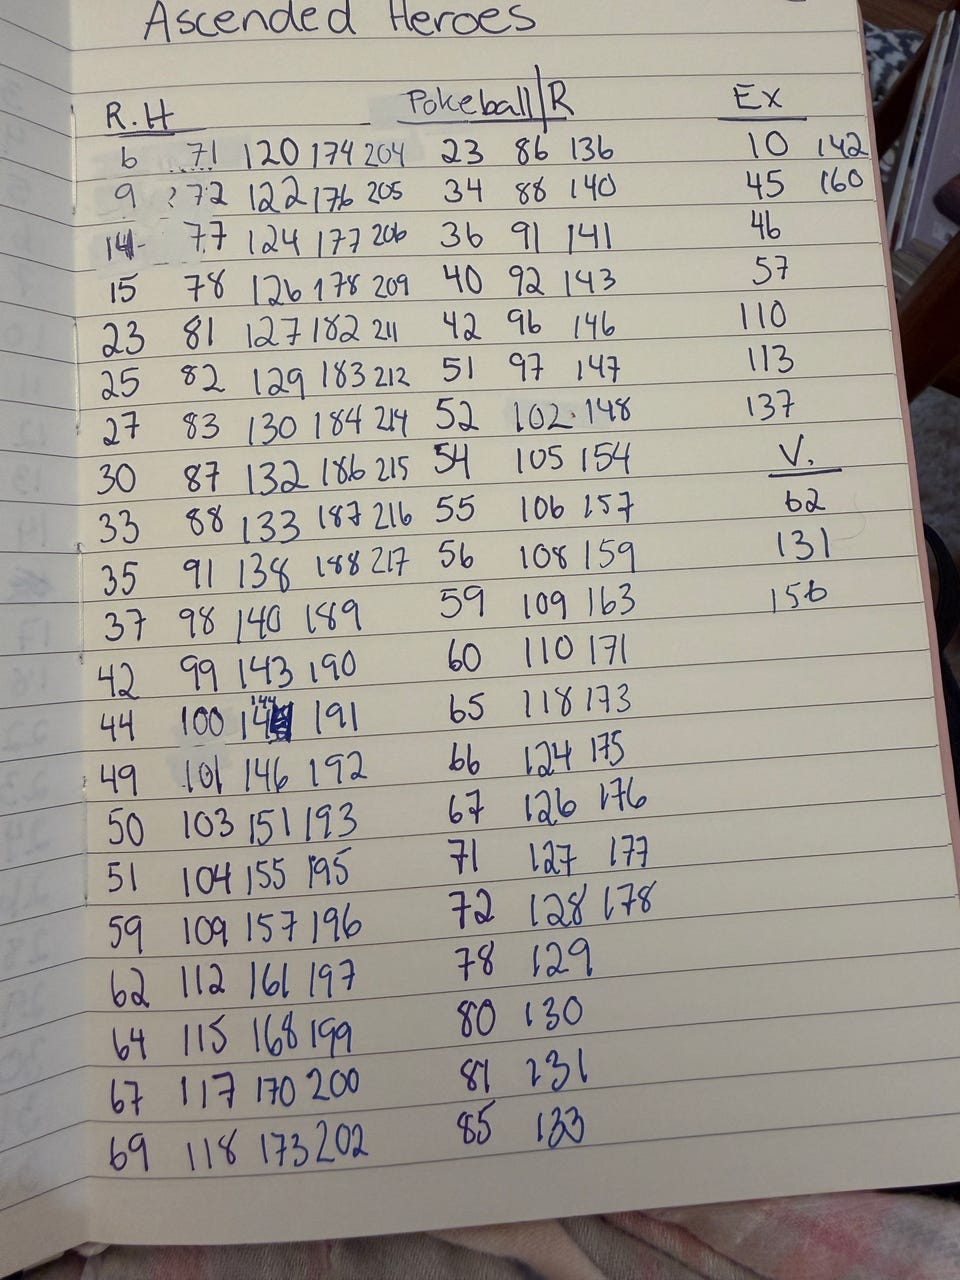 Ascended Heroes
R.H Pokeball/R Ex
6 71 120 174 204 23 86 136 10 142
9 ?72 122 176 205 34 88 140 45 160
14- 77 124 177 206 36 91 141 46
15 78 126 178 209 40 92 143 57
23 81 127 182 211 42 96 146 110
25 82 129 183 212 51 97 147 113
27 83 130 184 214 52 102 148 137
30 87 132 186 215 54 105 154 V.
33 88 133 187 216 55 106 157 62
35 91 138 188 217 56 108 159 131
37 98 140 189 59 109 163 156
42 99 143 190 60 110 171
44 100 144 191 65 118 173
49 101 146 192 66 124 175
50 103 151 193 67 126 176
51 104 155 195 71 127 177
59 109 157 196 72 128 178
62 112 161 197 78 129
64 115 168 199 80 130
67 117 170 200 81 131
69 118 173 202 85 133